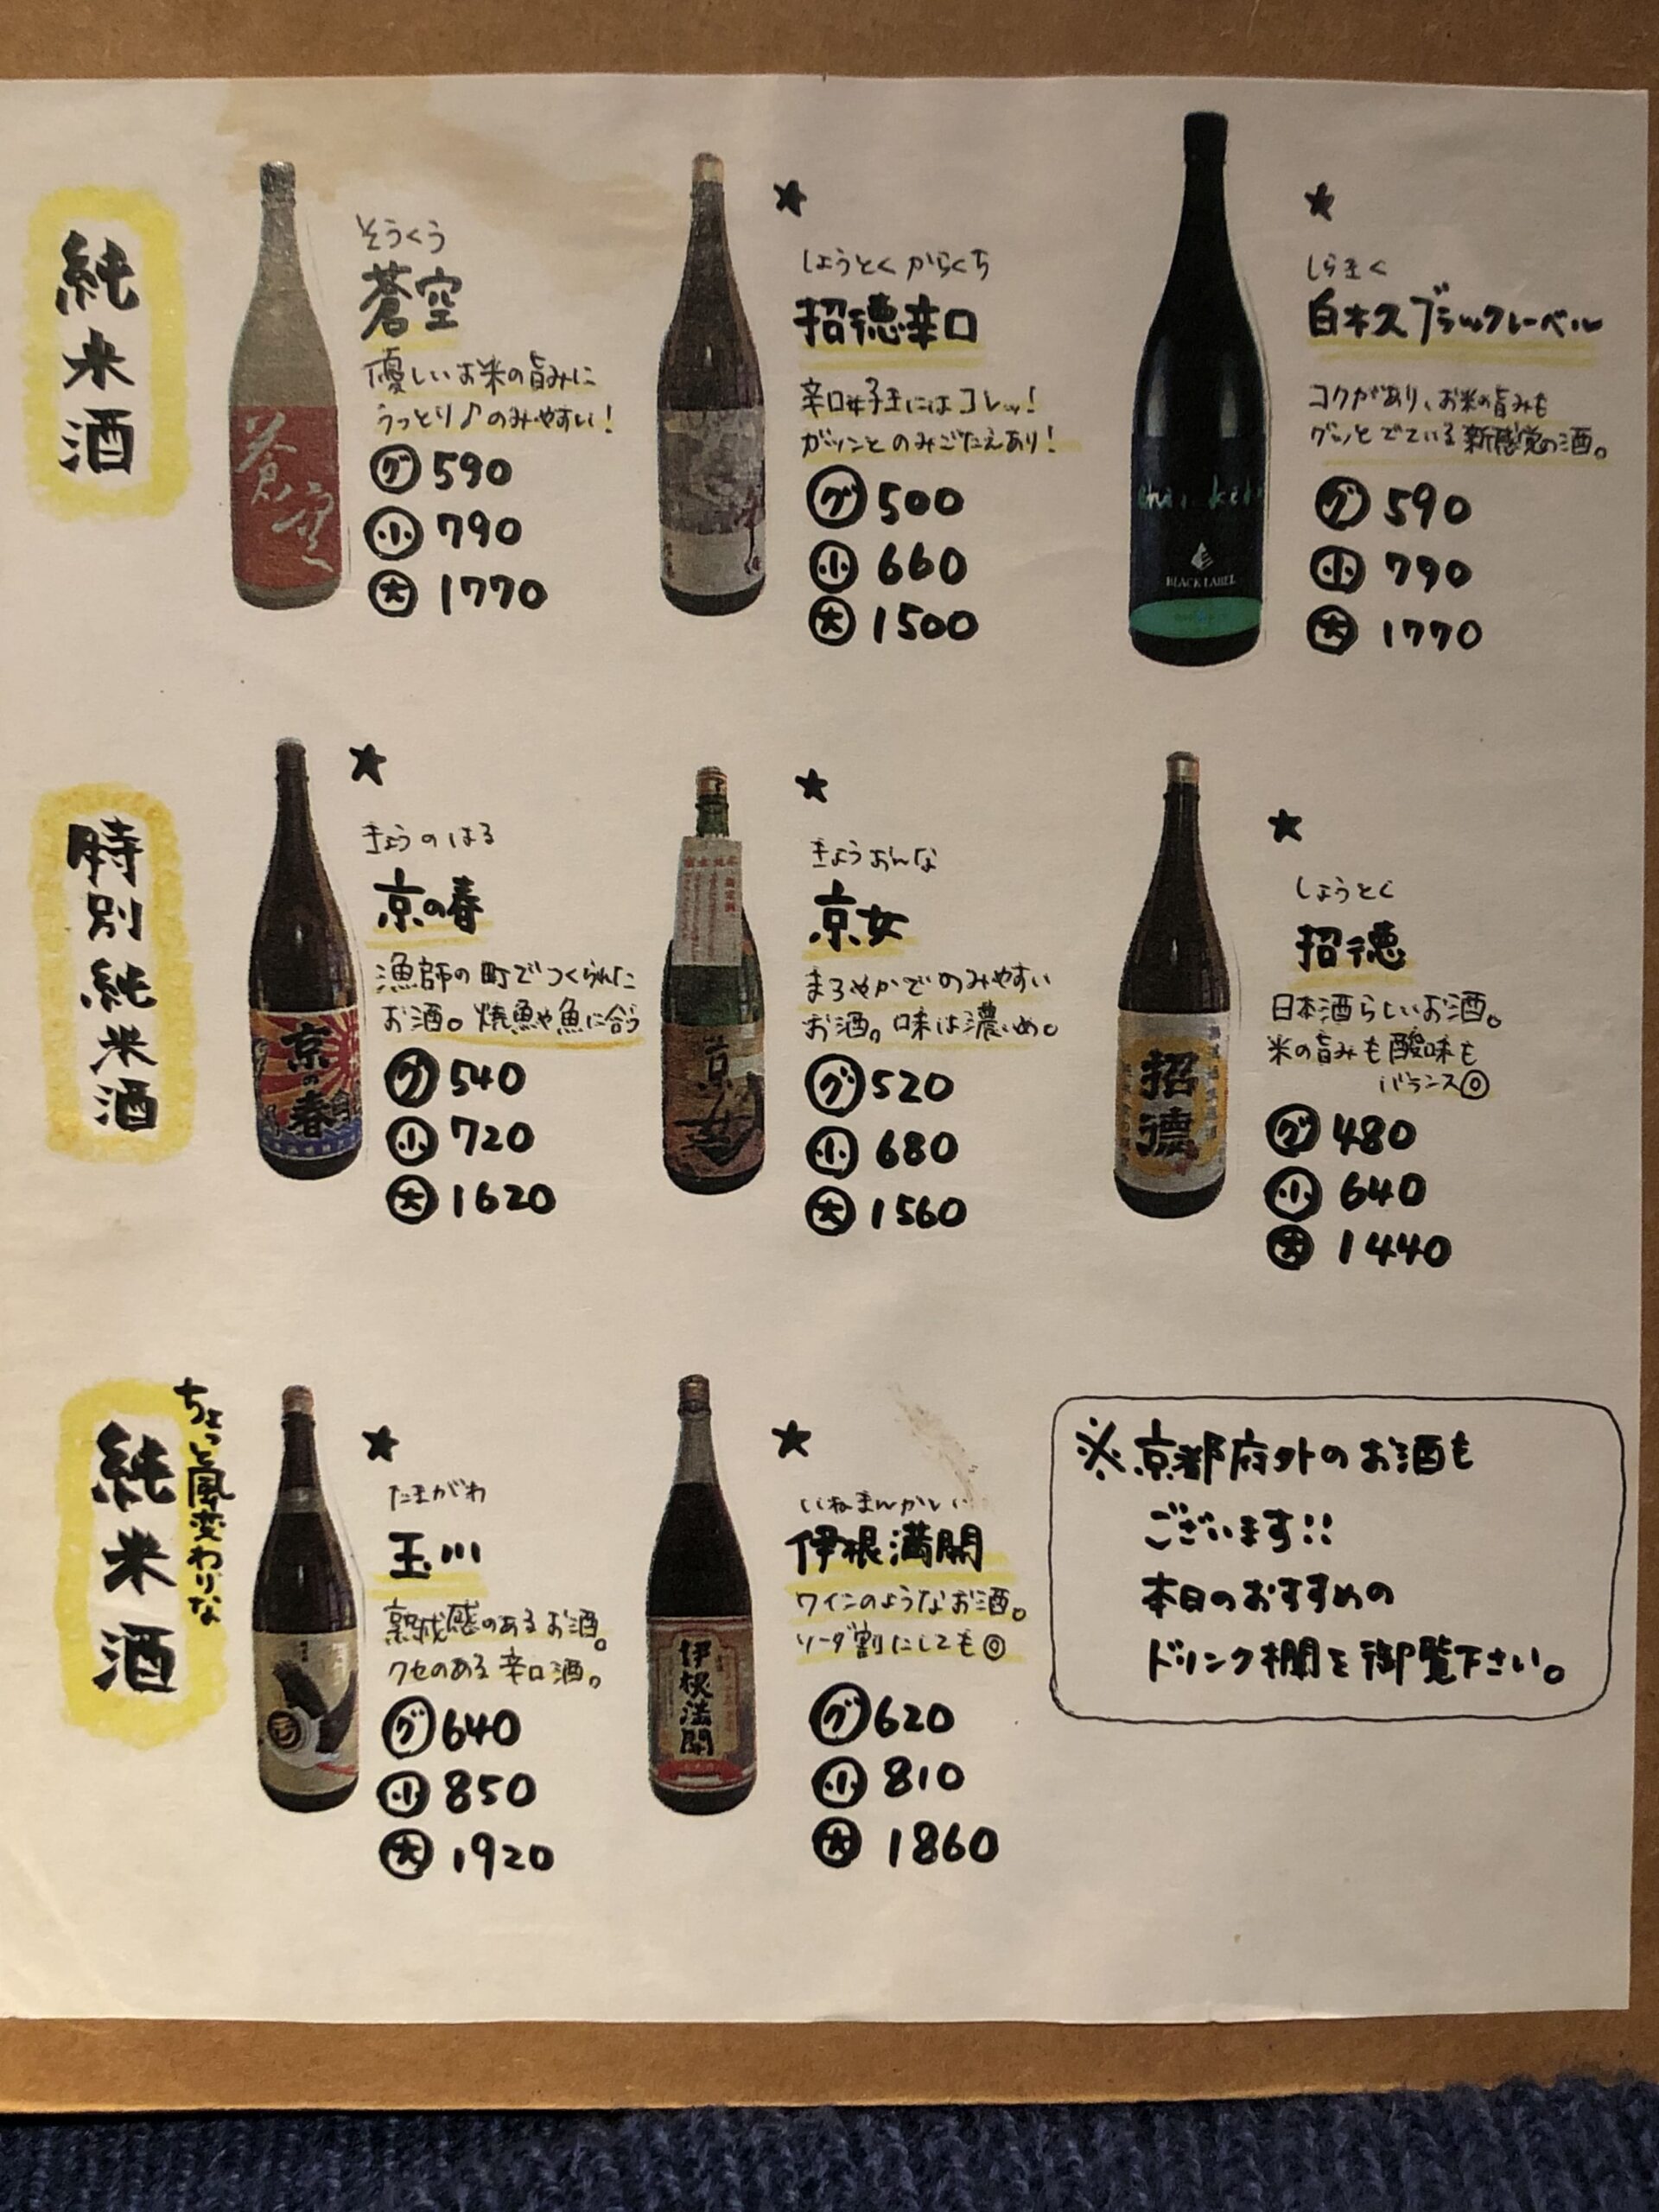 純米酒
そうくう
蒼空
優しいお米の旨みに
うっとり♪のみやすい!
グ 590
小 790
大 1770
蒼空
★
しょうとく からくち
招德辛口
辛口好きにはコレッ!
ガツンとのみごたえあり!
グ 500
小 660
大 1500
★
しらきく
白木久ブラックレーベル
コクがあり、お米の旨みも
グッとでている新感覚の酒。
グ 590
小 790
大 1770
BLACK LABEL
特別純米酒
★
きょうのはる
京の春
漁師の町でつくられた
お酒。焼魚や魚に合う
グ 540
小 720
大 1620
京の春
★
きょうおんな
京女
まろやかでのみやすい
お酒。味は濃いめ。
グ 520
小 680
大 1560
京女
★
しょうとく
招德
日本酒らしいお酒。
米の旨みも酸味も
バランス◎
グ 480
小 640
大 1440
招德
ちょっと風変わりな
純米酒
★
たまがわ
玉川
熟成感のあるお酒。
クセのある辛口酒。
グ 640
小 850
大 1920
★
いねまんかい
伊根満開
ワインのようなお酒。
ソーダ割にしても◎
グ 620
小 810
大 1860
伊根満開
※京都府外のお酒も
ございます!!
本日のおすすめの
ドリンク欄を御覧下さい。